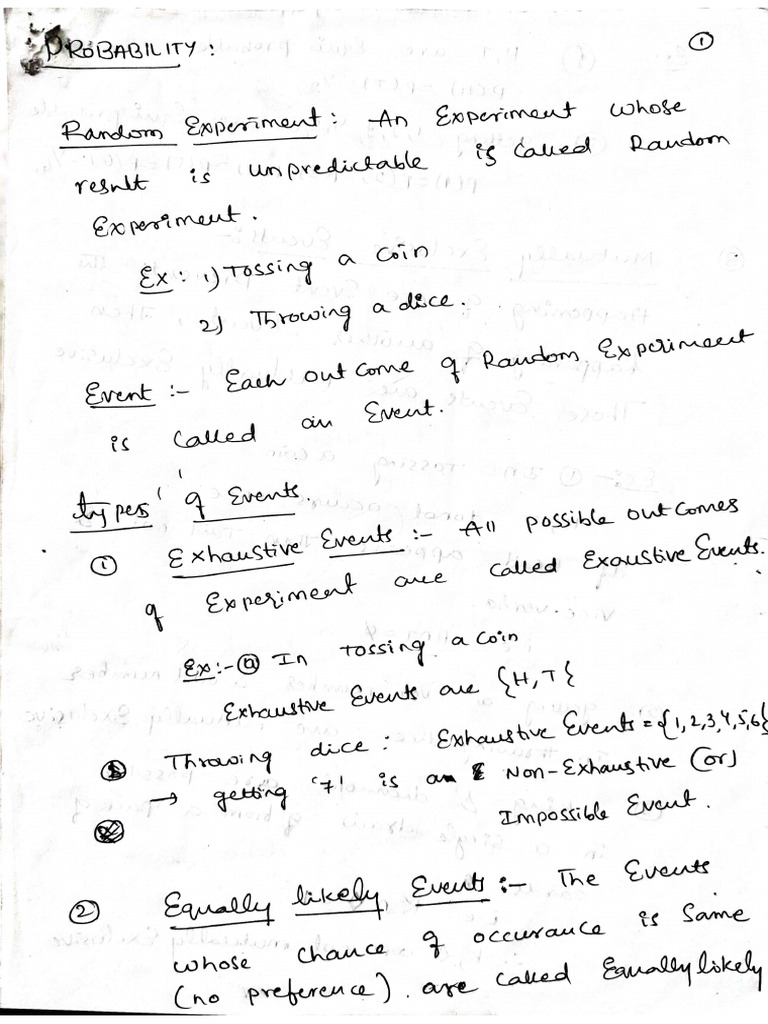 PROBABILITY: ①
Random Experiment: An Experiment whose
result is unpredictable is called Random
Experiment.
Ex: 1) Tossing a coin
2) Throwing a dice.
Event :- Each outcome of Random Experiment
is called an Event.
types of Events.
① Exhaustive Events :- All possible outcomes
of Experiment are called Exaustive Events.
Ex:- ⓐ In tossing a coin
Exhaustive Events are {H,T}
ⓑ Throwing dice: Exhaustive Events = {1,2,3,4,5,6}
→ getting '7' is an Non-Exhaustive (or)
Impossible Event.
② Equally likely Events :- The Events
whose chance of occurance is Same
(no preference). are called Equally likely